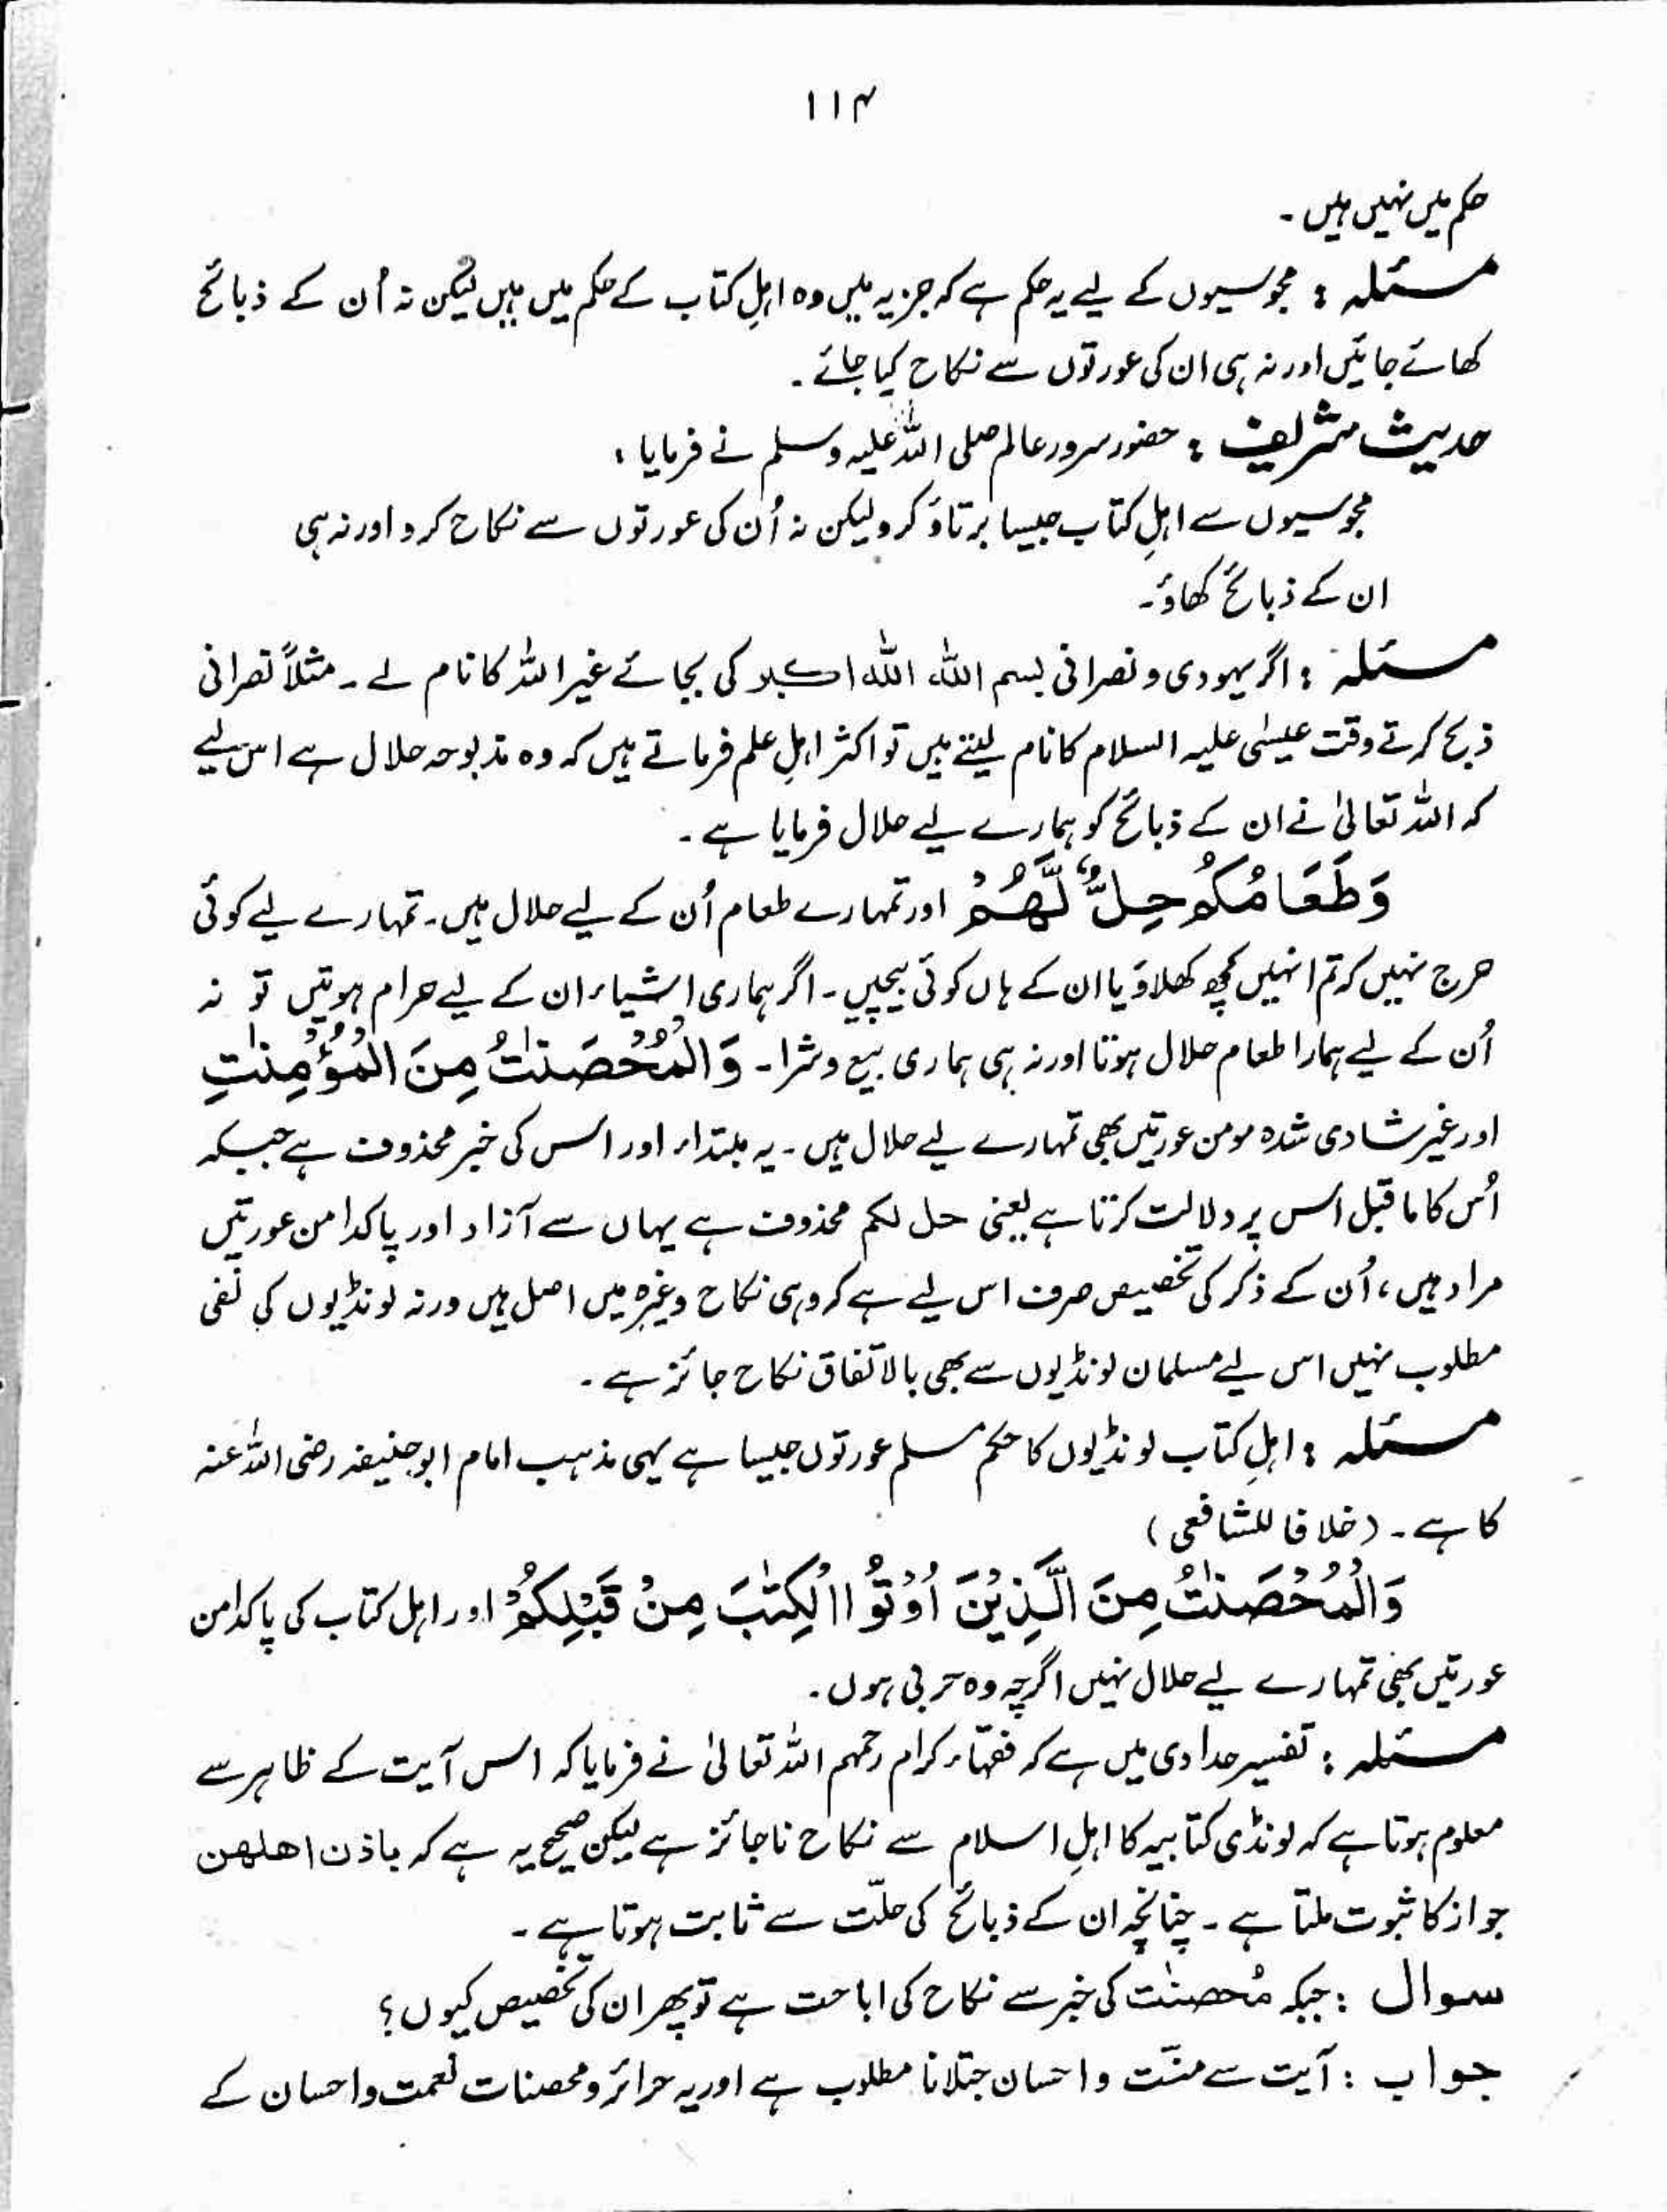 ۱۱۴
حکم میں نہیں ہیں۔
مسئلہ : مجوسیوں کے لیے یہ حکم ہے کہ جزیہ میں وہ اہلِ کتاب کے حکم میں ہیں لیکن نہ اُن کے ذبائح
کھائے جائیں اور نہ ہی ان کی عورتوں سے نکاح کیا جائے۔
حدیث شریف : حضور سرور عالم صلی اللہ علیہ وسلم نے فرمایا :
مجوسیوں سے اہلِ کتاب جیسا برتاؤ کرو لیکن نہ اُن کی عورتوں سے نکاح کرو اور نہ ہی
ان کے ذبائح کھاؤ۔
مسئلہ : اگر یہودی و نصرانی بسم اللہ اللہ اکبر کی بجائے غیر اللہ کا نام لے۔ مثلاً نصرانی
ذبح کرتے وقت عیسٰی علیہ السلام کا نام لیتے ہیں تو اکثر اہلِ علم فرماتے ہیں کہ وہ مذبوحہ حلال ہے اس لیے
کہ اللہ تعالیٰ نے ان کے ذبائح کو ہمارے لیے حلال فرمایا ہے۔
وَطَعَامُكُمْ حِلٌّ لَّهُمْ اور تمہارے طعام اُن کے لیے حلال ہیں۔ تمہارے لیے کوئی
حرج نہیں کہ تم انہیں کچھ کھلاؤ یا ان کے ہاں کوئی بیچیں۔ اگر ہماری اشیاء ان کے لیے حرام ہوتیں تو نہ
اُن کے لیے ہمارا طعام حلال ہوتا اور نہ ہی ہماری بیع و شرا۔ وَالْمُحْصَنٰتُ مِنَ الْمُؤْمِنٰتِ
اور غیر شادی شدہ مومن عورتیں بھی تمہارے لیے حلال ہیں۔ یہ مبتداء اور اس کی خبر محذوف ہے جبکہ
اُس کا ماقبل اس پر دلالت کرتا ہے یعنی حل لکم محذوف ہے یہاں سے آزاد اور پاکدامن عورتیں
مراد ہیں، اُن کے ذکر کی تخصیص صرف اس لیے ہے کہ وہی نکاح وغیرہ میں اصل ہیں ورنہ لونڈیوں کی نفی
مطلوب نہیں اس لیے مسلمان لونڈیوں سے بھی بالاتفاق نکاح جائز ہے۔
مسئلہ : اہلِ کتاب لونڈیوں کا حکم مسلم عورتوں جیسا ہے یہی مذہب امام ابوحنیفہ رضی اللہ عنہ
کا ہے۔ (خلافا للشافعی)
وَالْمُحْصَنٰتُ مِنَ الَّذِيْنَ اُوْتُوا الْكِتٰبَ مِنْ قَبْلِكُمْ اور اہل کتاب کی پاکدامن
عورتیں بھی تمہارے لیے حلال نہیں اگرچہ وہ حربی ہوں۔
مسئلہ : تفسیر حدادی میں ہے کہ فقہاء کرام رحمہم اللہ تعالیٰ نے فرمایا کہ اس آیت کے ظاہر سے
معلوم ہوتا ہے کہ لونڈی کتابیہ کا اہلِ اسلام سے نکاح ناجائز ہے لیکن صحیح یہ ہے کہ باذن اھلھن
جواز کا ثبوت ملتا ہے۔ چنانچہ ان کے ذبائح کی حلّت سے ثابت ہوتا ہے۔
سوال : جبکہ مُحصنٰت کی خبر سے نکاح کی اباحت ہے تو پھر ان کی تخصیص کیوں؟
جواب : آیت سے منّت و احسان جتلانا مطلوب ہے اور یہ حرائر و محصنات نعمت و احسان کے